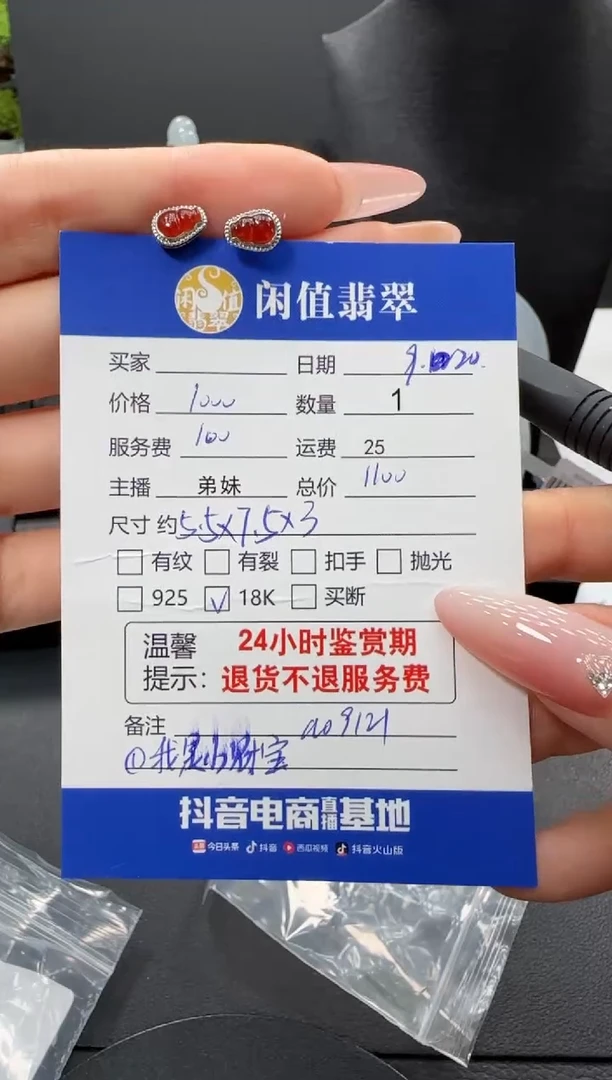 闲值翡翠
闲值翡翠
买家 日期 9. 20.
价格 1000 数量 1
服务费 100 运费 25
主播 弟妹 总价 1100
尺寸 约5.5x7.5x3
有纹 有裂 扣手 抛光
925 18K 买断
温馨 24小时鉴赏期
提示: 退货不退服务费
备注 ao9121
①我是小财宝
抖音电商直播基地
今日头条 抖音 西瓜视频 抖音火山版